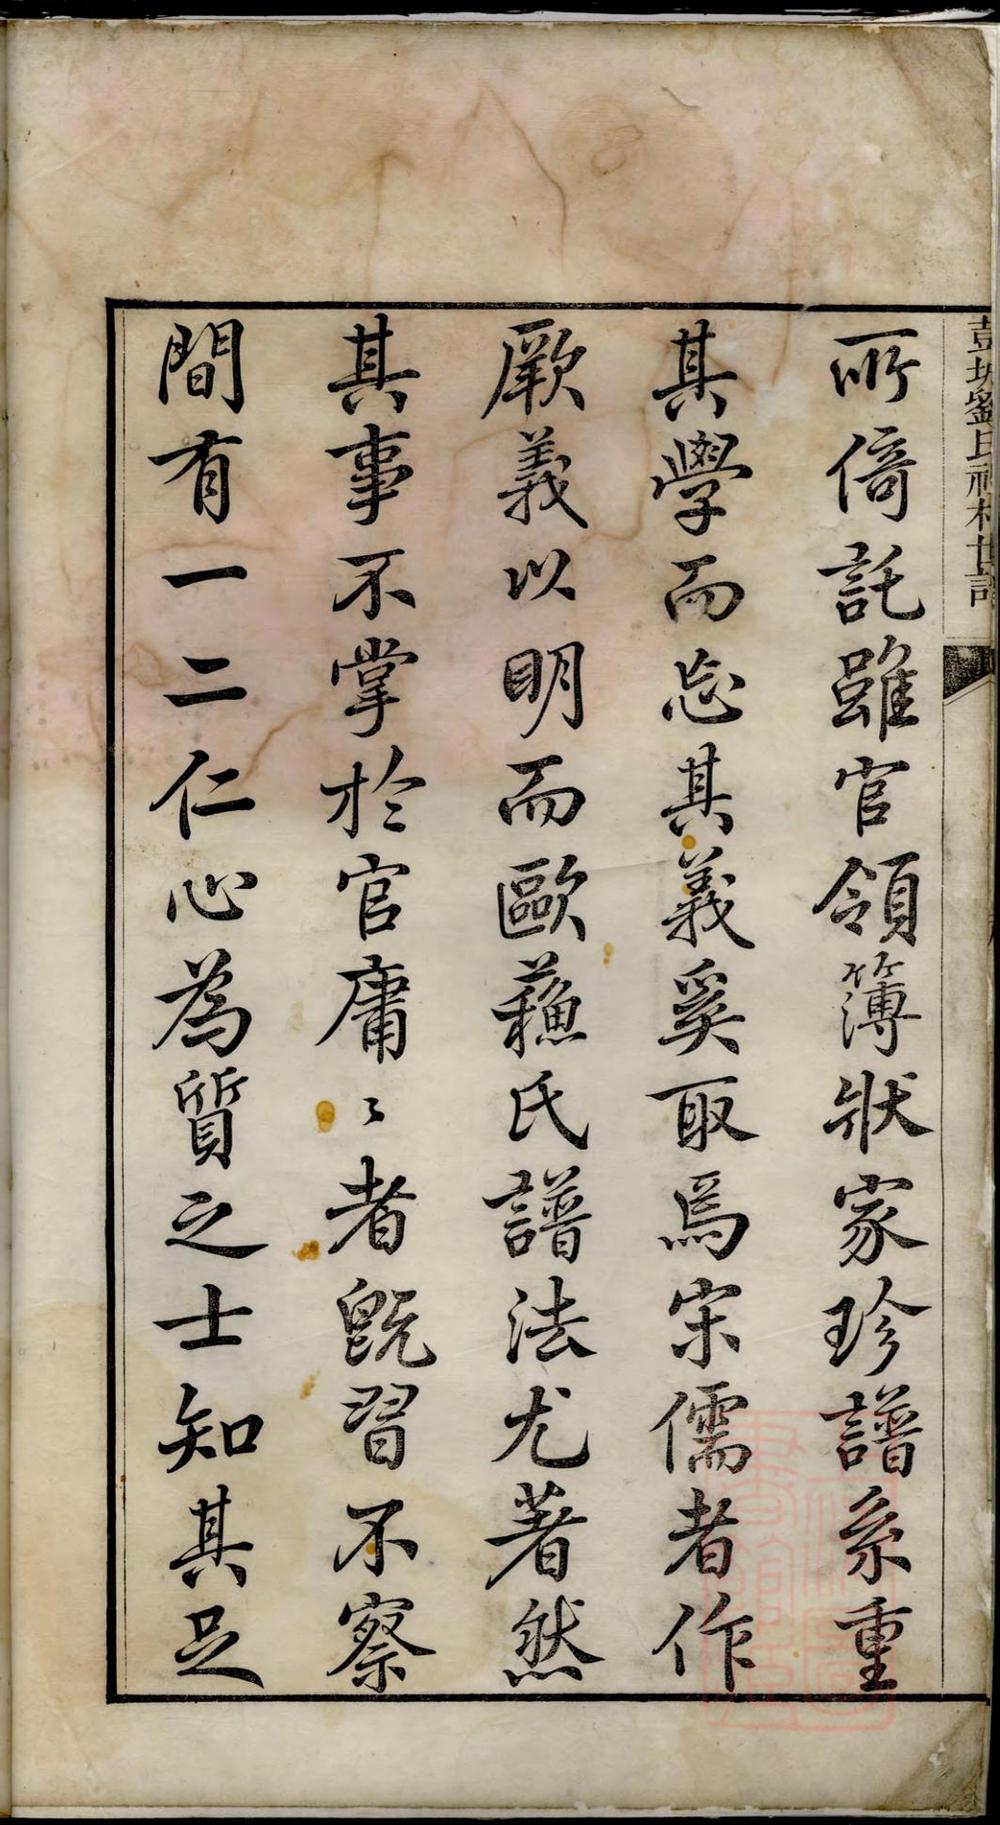 所倚託雖官領簿狀家珍譜系重
其學而忘其義奚取焉宋儒者作
厥義以明而歐蘓氏譜法尤著然
其事不掌於官庸〻者旣習不察
間有一二仁心為質之士知其足
彭城劉氏祠村世譜